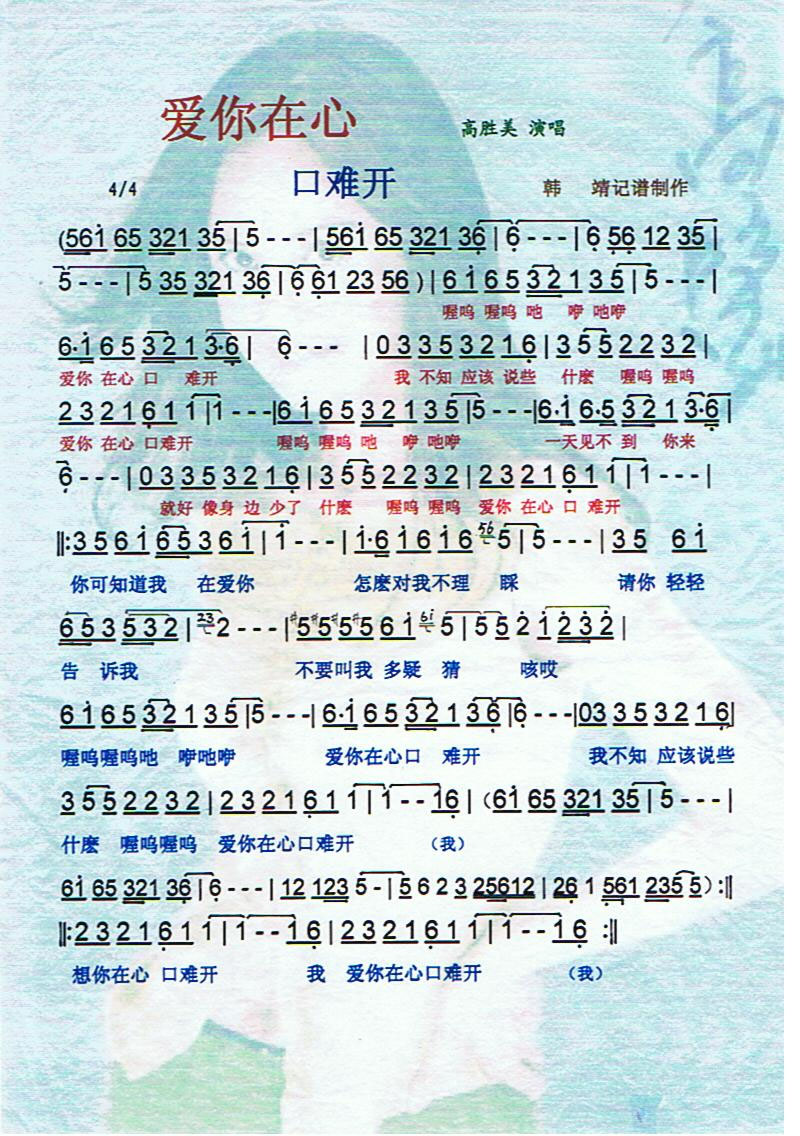 爱你在心
高胜美 演唱
4/4 口难开 韩 靖记谱制作
(561 65 321 35 | 5 - - - | 561 65 321 36 | 6 - - - | 6 56 12 35 |
5 - - - | 5 35 321 36 | 6 61 23 56 ) | 6 1 6 5 3 2 1 3 5 | 5 - - - |
喔呜 喔呜 吔 咿 吔咿
6·1 6 5 3 2 1 3·6 | 6 - - - | 0 3 3 5 3 2 1 6 | 3 5 5 2 2 3 2 |
爱你 在心 口 难开 我 不知 应该 说些 什麽 喔呜 喔呜
2 3 2 1 6 1 1 | 1 - - - | 6 1 6 5 3 2 1 3 5 | 5 - - - | 6·1 6·5 3 2 1 3·6 |
爱你 在心 口难开 喔呜 喔呜 吔 咿 吔咿 一天见不 到 你来
6 - - - | 0 3 3 5 3 2 1 6 | 3 5 5 2 2 3 2 | 2 3 2 1 6 1 1 | 1 - - - |
就好 像身 边 少了 什麽 喔呜 喔呜 爱你 在心 口 难开
‖: 3 5 6 1 6 5 3 6 1 | 1 - - - | 1·6 1 6 1 6 56 5 | 5 - - - | 3 5 6 1
你可知道我 在爱你 怎麽对我不理 睬 请你 轻轻
6 5 3 5 3 2 | 23 2 - - - | #5 #5 #5 #5 6 1 61 5 | 5 5 2 1 2 3 2 |
告 诉我 不要叫我 多疑 猜 咳哎
6 1 6 5 3 2 1 3 5 | 5 - - - | 6·1 6 5 3 2 1 3 6 | 6 - - - | 03 3 5 3 2 1 6 |
喔呜喔呜吔 咿吔咿 爱你在心口 难开 我不知 应该说些
3 5 5 2 2 3 2 | 2 3 2 1 6 1 1 | 1 - - 16 | (61 65 321 35 | 5 - - - |
什麽 喔呜喔呜 爱你在心口难开 （我）
61 65 321 36 | 6 - - - | 12 123 5 - | 5 6 2 3 25612 | 26 1 561 235 5) :‖
‖: 2 3 2 1 6 1 1 | 1 - - 1 6 | 2 3 2 1 6 1 1 | 1 - - 1 6 :‖
想你在心 口难开 我 爱你在心口难开 （我）